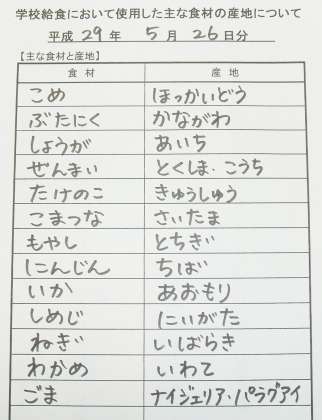 学校給食において使用した主な食材の産地について
平成 29 年 5 月 26 日分
【主な食材と産地】
食材 産地
こめ ほっかいどう
ぶたにく かながわ
しょうが あいち
ぜんまい とくしま・こうち
たけのこ きゅうしゅう
こまつな さいたま
もやし とちぎ
にんじん ちば
いか あおもり
しめじ にいがた
ねぎ いばらき
わかめ いわて
ごま ナイジェリア・パラグアイ